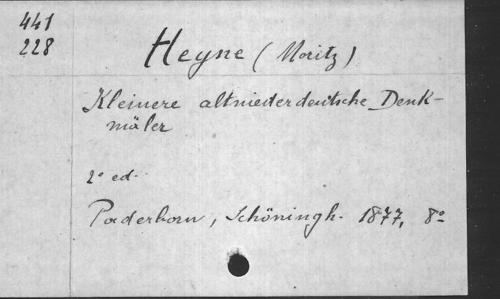 441
228
Heyne (Moritz)
Kleinere altniederdeutsche Denk-
mäler
2° ed.
Paderborn, Schöningh. 1877, 8°